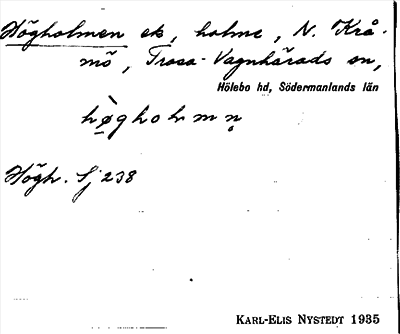 Högholmen ek, holme, N. Krå-
mö, Trosa-Vagnhärads sn,
Hölebo hd, Södermanlands län
hø̀gholmn̥
Högh. Sj 238
KARL-ELIS NYSTEDT 1935